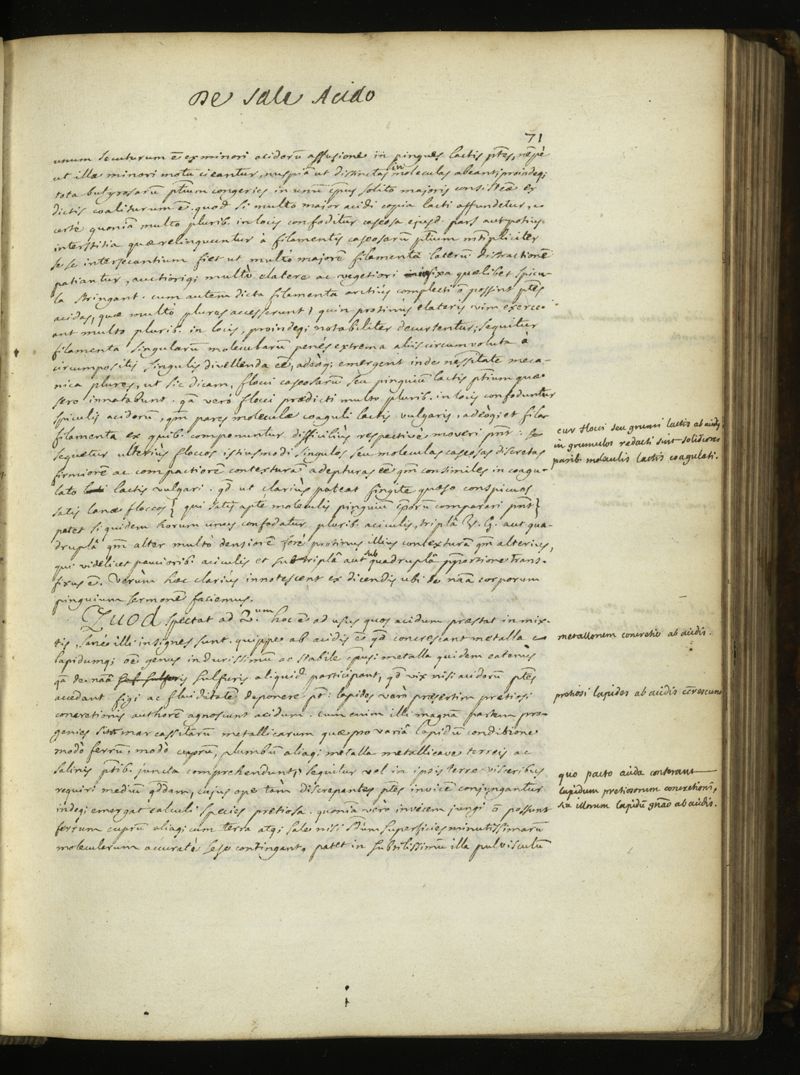 De Sale Acido
71
unum secuturum ē ex minori acidorū affusione in pingues lactis ptes, nēpè
ut illæ minori motu cieantur, nuspiā ut distinctas in moleculas abeant, proindeq;
tota butyrosarū ptium congeries in unū corpus solito majoris consistēæ ex
dictis coaliturum ē. quod si multo major acidi copia lacti affundetur,
certè quoniā multo plurib. in locis confoditur caseosa ejusd. pars aut potius
interstitia quæ relinquuntur à filamentis caseosarū ptium mltipliciter
se se intersecantium fiet ut multo majorē filamenta laterū distractionē
patiantur, auctioriq; multo elatere ac vegetiori infixa quælibet spicu-
la stringant. cum autem dicta filamenta arctiùs complecti ō possint ptes
acidas, quæ multo plures accesserunt, quin protinus elateris vim exerce-
ant multo plurib. in locis, proindeq; notabiliter decurtentur, sequitur
filamenta singularū molecularū penès extrema aliis circumvoluta à
circumpositis singulis divellenda ēē, adeoq; emergent inde necessitate mecha-
nica plures, ut sic dicam, flocci caseosarū seu pinguiū lactis ptium quæ
sero innatabunt. qā verò flocci prædicti multo plurib. in locis confoduntur
spiculis acidorū, qm pares moleculæ coaguli lactis vulgaris, adeoq; et
filamenta ex quib. componuntur difficiliùs respectivè moveri pnt:
sequetur ulteriùs floccos istiusmodi singulos seu moleculas caseosas discretas
firmiorē ac compactiorē contexturā adepturas ēē qm consimiles in coagu-
lato lacti vulgari. qd ut clariùs pateat fingite quæso conspicuos
satis lanæ floccos { qui satis aptè moleculis pinguiū corporū comparari pnt }
patet siquidem horum unus confodatur plurib. aciculis, triplâ v. g. aut qua-
druplâ qm alter multò densiorē fore protinus illius contexturā qm alterius,
qui videlicet paucioribus aciculis et subtriplâ aut subquadruplâ proportione trans-
fixus ē. Verùm hoc clariùs innotescent ex dicendis ubi de nāā corporum
pinguium sermonē faciemus.
Quod spectat ad 2.um hoc ē ad usus quos acidum præstat in mix-
tis, sanè illi insignes sunt. quippe ab acidis ē qd concrescant metalla
lapidumq; oē genus indurissimū ac stabile corpus; metalla quidem eatenus
qā de nāā sulfuris aliquid participant, qd vix nisi acidorū ptes
accedant figi ac fluiditatē deponere pō: lapides verò præsertim pretiosi
concretionis authorē agnoscunt acidum. cum enim illi magnā partem pro-
genies sint marcassitarū metallicarum quæ pro variâ lapidū conditione
modò ferrū, modò cuprū, plumbūm aliaq; metalla metallicave terreis ac
salinis ptib. juncta comprehendunt; sequitur vel in ipsis terræ visceribus
requiri mediū qddam, cujus ope tàm discrepantes ptes invicē conjungantur
indeq; emergat calculi species pretiosa. quoniā verò invicem jungi ō possunt
ferrum cuprū aliaq; cum terra atq; sale nisi dum superficies minutissimarū
molecularum accuratè sese contingant, patet in subtilissimū illa pulvisculū
cur flocci seu grumi lactis ab acidis
in grumulos redacti sunt solidiores
parib. moleculis lactis coagulati.
metallorum concretio ab acidis.
pretiosi lapides ab acidis concrescunt
quo pacto acida conferant
lapidum pretiosorum concretioni,
illorum lapidū gnāō ab acidis.